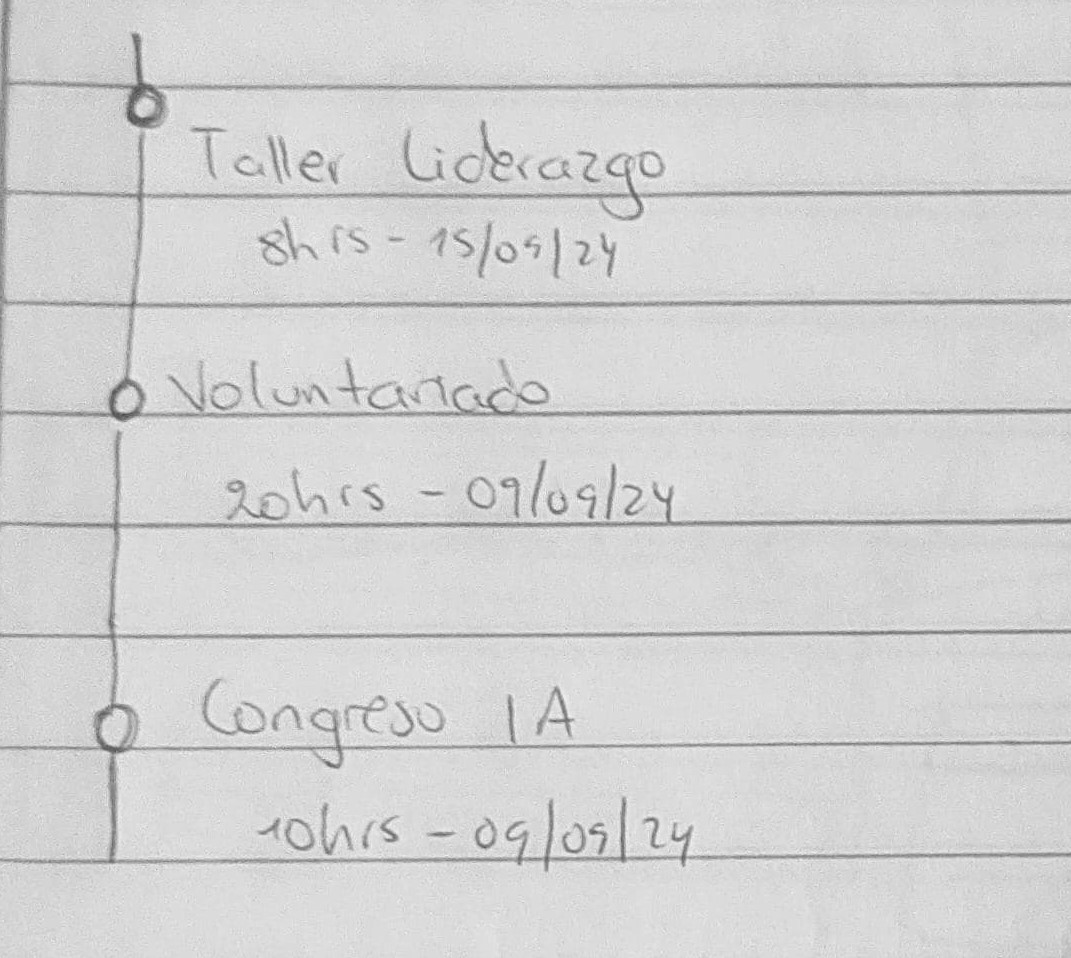 Taller Liderazgo
8hrs - 15/09/24
Voluntariado
20hrs - 09/09/24
Congreso IA
10hrs - 09/09/24